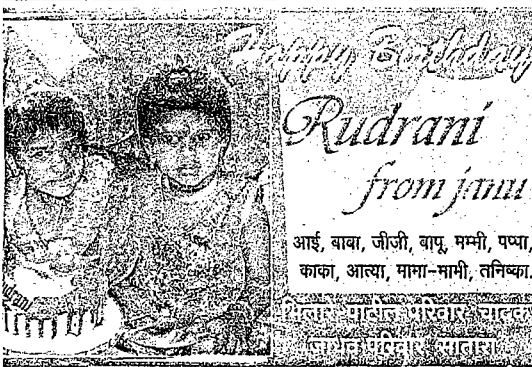 Happy Birthday
Rudrani
from janu
आई, बाबा, जीजी, बापू, मम्मी, पप्पा,
काका, आत्या, मामा-मामी, तनिष्का.
भिलारे पाटील परिवार चाळके
जाधव परिवार सातारा